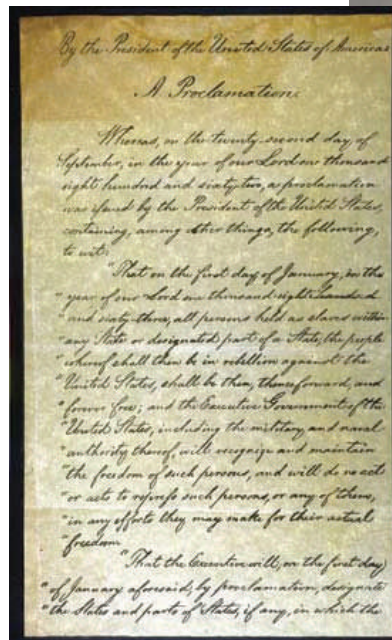 By the President of the United States of America:
A Proclamation.
Whereas, on the twenty-second day of
September, in the year of our Lord one thousand
eight hundred and sixty two, a proclamation
was issued by the President of the United States,
containing, among other things, the following,
to wit:
"That on the first day of January, in the
"year of our Lord one thousand eight hundred
"and sixty-three, all persons held as slaves within
"any State or designated part of a State, the people
"whereof shall then be in rebellion against the
"United States, shall be then, thenceforward, and
"forever free; and the Executive Government of the
"United States, including the military and naval
"authority thereof, will recognize and maintain
"the freedom of such persons, and will do no act
"or acts to repress such persons, or any of them,
"in any efforts they may make for their actual
"freedom.
"That the Executive will, on the first day
"of January aforesaid, by proclamation, designate
"the States and parts of States, if any, in which the